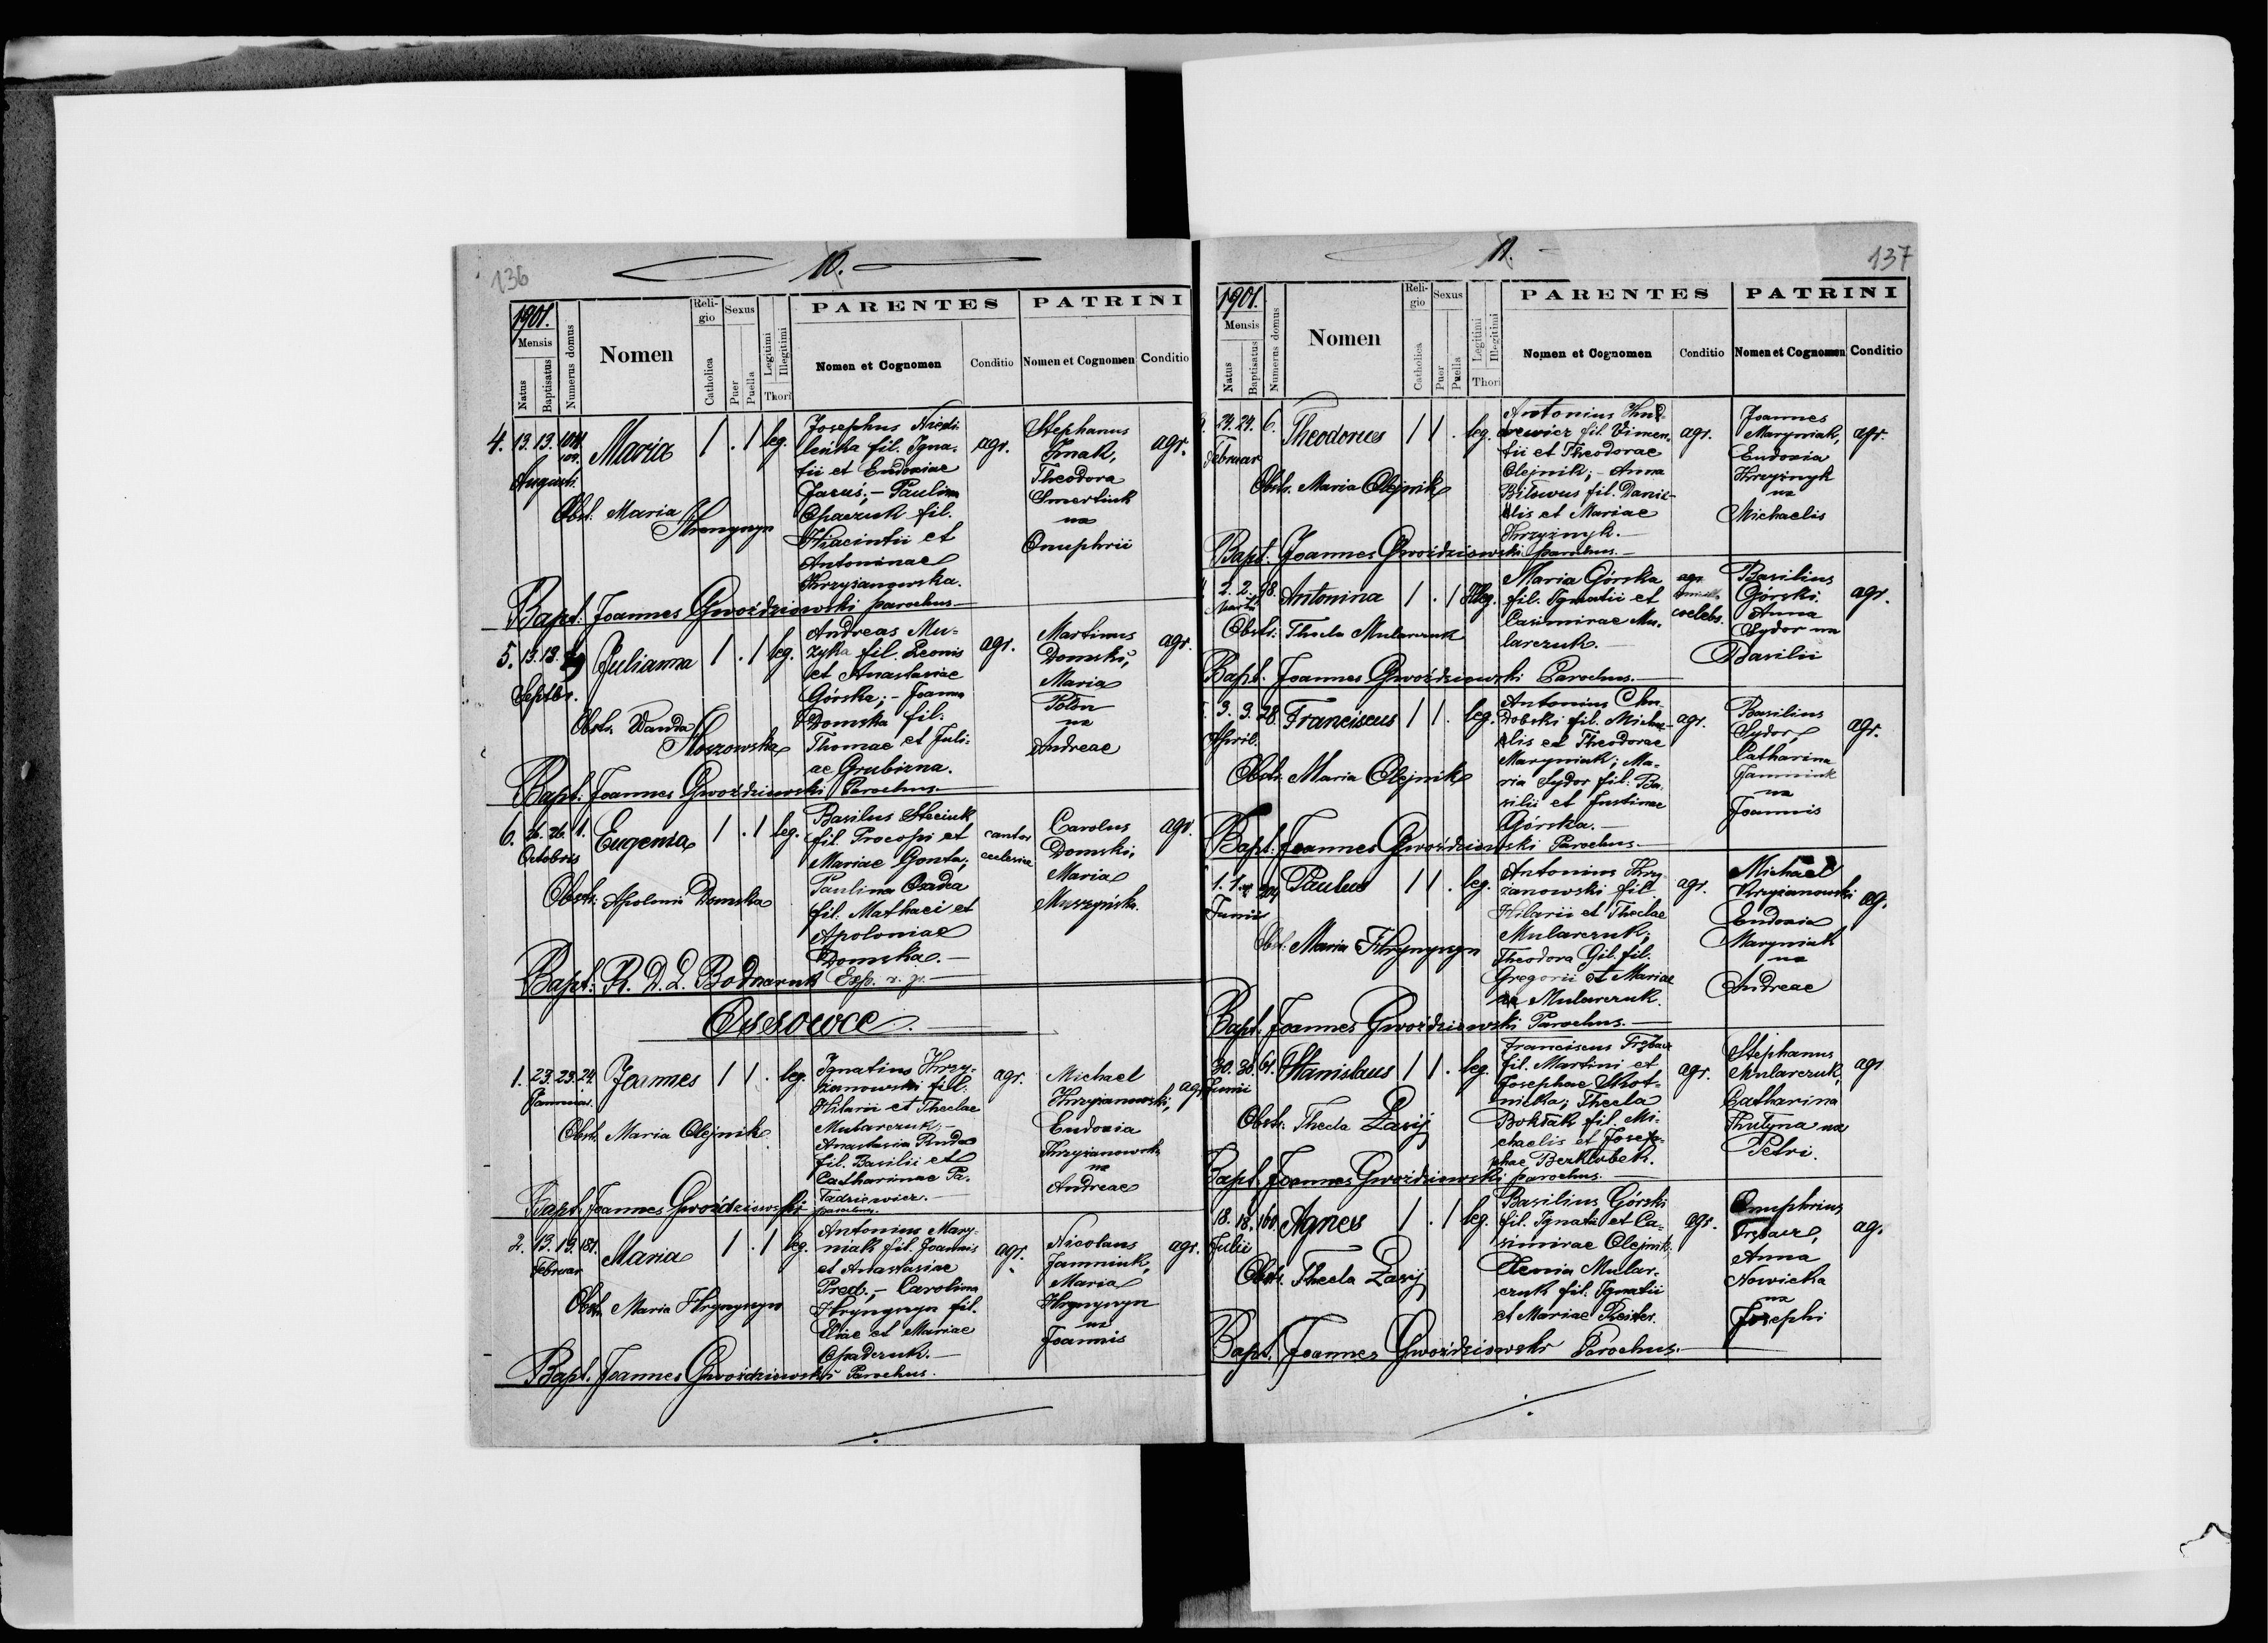 136
10.
1901.
Mensis
Natus
Baptisatus
Numerus domus
Nomen
Reli-
gio
Catholica
Sexus
Puer
Puella
Legitimi
Illegitimi
Thori
PARENTES
Nomen et Cognomen
Conditio
PATRINI
Nomen et Cognomen
Conditio
4. 13. 13.
Augusti
Maria 1 . 1 leg.
Obst: Maria
Hrynyszyn
Josephus
fil. Igna-
tii et Eudoxiae
Jaruś; - Paulina
Opaczuk fil.
Hiacintii et
Antoninae
Krzyżanowska.
agr.
Stephanus
Theodora
Smertiuk
na
Onuphrii
agr.
Bapt: Joannes Gwoździowski parochus
5. 13. 13.
Septbr.
Julianna 1 . 1 leg.
Obstr. Wanda
Andreas Mu-
zyka fil. Leonis
et Anastasiae
Górska; - Joanna
Domska fil.
Thomae et Juli-
ae Grubizna.
agr.
Martinus
Domski,
Maria
na
Andreae
agr.
Bapt: Joannes Gwoździowski Parochus
6. 26. 26. 1.
Octobris
Eugenia 1 . 1 leg.
Obstr: Apolonia Domska
Basilus Steciuk
fil. Procopi et
Mariae Gonta;
Paulina Osadca
fil. Mathaei et
Apoloniae
Domska. -
cantor
ecclesiae
Carolus
Domski,
Maria
Muszyńska.
agr.
Bapt: R. D. L. Bodnaruk Exp. r. gr.
Ossowce.
1. 23. 23. 24.
Januar.
Joannes 1 1 . leg.
Obstr. Maria Olejnik
Ignatius Krzy-
żanowski fil.
Hilarii et Theclae
Mularczuk; -
Anastasia Ruda
fil. Basilii et
Catharinae Pa-
Tadziewicz. -
agr.
Michael
Krzyżanowski,
Eudoxia
Krzyżanowska
na
Andreae
agr.
Bapt. Joannes Gwoździowski parochus.
2. 13. 13. 181.
Februar
Maria 1 . 1 leg.
Obstr. Maria Hrynyszyn
Antonius Mary-
niak fil. Joannis
et Anastasiae
Pred; - Carolina
Hrynyszyn fil.
Eliae et Mariae
Opadczuk. -
agr.
Nicolaus
Jamniuk,
Maria
Hrynyszyn
na
Joannis
agr.
Bapt. Joannes Gwoździowski Parochus.
11.
137
1901.
Mensis
Natus
Baptisatus
Numerus domus
Nomen
Reli-
gio
Catholica
Sexus
Puer
Puella
Legitimi
Illegitimi
Thori
PARENTES
Nomen et Cognomen
Conditio
PATRINI
Nomen et Cognomen
Conditio
24. 24. 6.
Februar
Theodorus 1 1 . leg.
Obstr. Maria Olejnik
Antonius
fil. Vincen-
tii et Theodorae
Olejnik; - Anna
Biłowus fil. Danie-
lis et Mariae
Krzyżnyk. -
agr.
Joannes
Maryniak,
Eudoxia
Krzyżnyk
na
Michaelis
agr.
Bapt: Joannes Gwoździowski parochus. -
2. 2. 98.
Martii
Antonina 1 . 1 Illeg.
Obstr: Thecla Mularczuk
Maria Górska
fil. Ignatii et
Casimirae Mu-
larczuk. -
agr.
coelebs.
Basilius
Górski
Anna
Sydor na
Basilii
agr.
Bapt. Joannes Gwoździowski Parochus. -
3. 3. 28.
April.
Franciscus 1 1 . leg.
Obstr. Maria Olejnik
Antonius Chu-
dobski fil. Micha-
elis et Theodorae
Maryniak; Ma-
ria Sydor fil. Ba-
silii et Justinae
Górska. -
agr.
Basilius
Sydor,
Catharina
Jamniuk
na
Joannis
agr.
Bapt: Joannes Gwoździowski Parochus. -
1. 1.
Junii
Paulus 1 1 . leg.
Obst. Maria Hrynyszyn
Antonius Krzy-
żanowski fil.
Hilarii et Theclae
Mularczuk;
Theodora Gil. fil.
Gregorii et Mariae
Mularczuk.
agr.
Michael
Krzyżanowski
Eudoxia
Maryniak
na
Andreae
ag.
Bapt: Joannes Gwoździowski Parochus. -
30. 30. 61.
Junii
Stanislaus 1 1 . leg.
Obstr: Thecla Zasij
Franciscus Trębacz
fil. Martini et
Josephae
Thecla
fil. Mi-
chaelis et Josep-
hae
agr.
Stephanus
Mularczuk,
Catharina
na
Petri.
agr
Bapt. Joannes Gwoździowski parochus.
18. 18. 160.
Julii
Agnes 1 . 1 leg.
Obstr. Thecla Zasij
Basilius Górski
fil. Ignatii et Ca-
simirae Olejnik;
Xenia Mular-
czuk fil. Ignatii
et Mariae Reiter.
agr.
Onuphrius
Trębacz,
Anna
Nowicka
na
Josephi
ag.
Bapt. Joannes Gwoździowski Parochus.